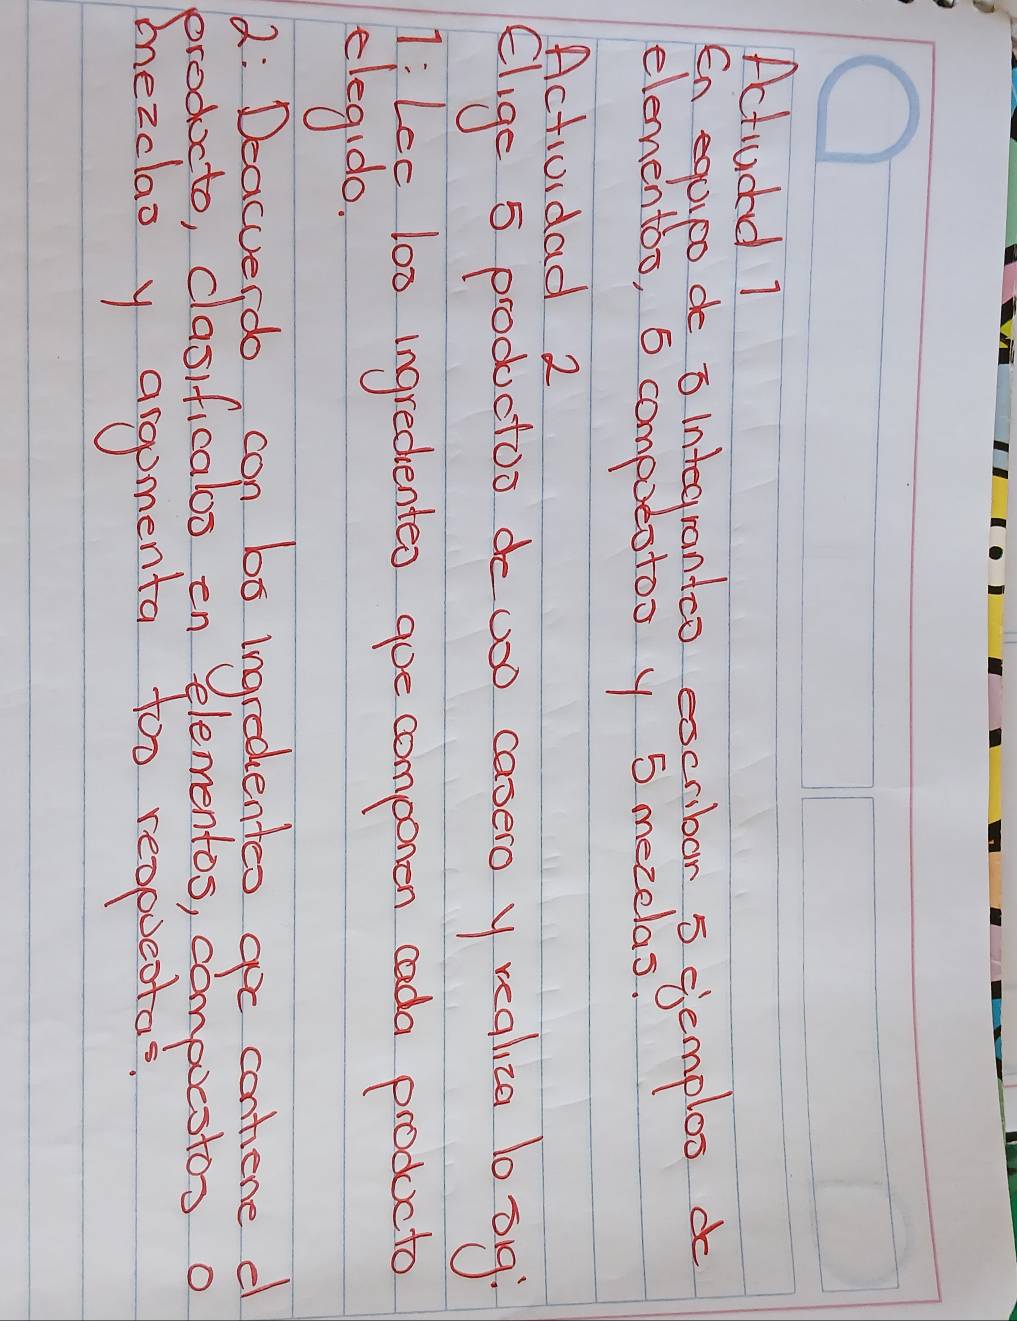 Actividad 1
En equipo de 5 integrantes escribar 5 ejemplos de
elementos, 5 compuestos y 5 mezclas.
Actividad 2
Elige 5 productos de uso casero y realiza lo sig:
1: Lee los ingredientes que componen cada producto
elegido.
2: Deacuerdo con los ingredientes que contiene el
producto, clasificalos en elementos, compuestos o
mezclas y argumenta tus respuestas.